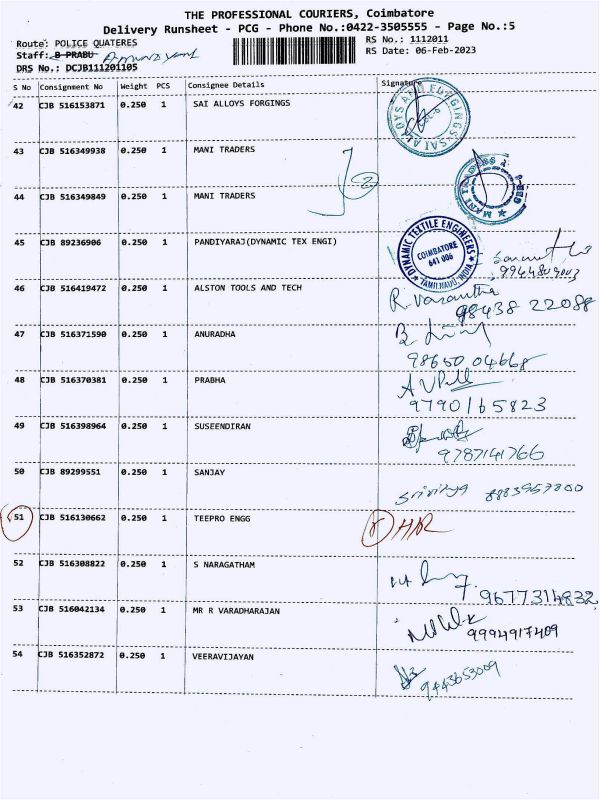 THE PROFESSIONAL COURIERS, Coimbatore
Delivery Runsheet - PCG - Phone No.:0422-3505555 - Page No.:5
Route: POLICE QUATERES
RS No.: 1112011
Staff: B PRABU
RS Date: 06-Feb-2023
DRS No.: DCJB111201105
S No Consignment No Weight PCS Consignee Details Signature
42 CJB 516153871 0.250 1 SAI ALLOYS FORGINGS
ALLOYS AND FORGINGS SAI
43 CJB 516349938 0.250 1 MANI TRADERS
44 CJB 516349849 0.250 1 MANI TRADERS
MANI TRADERS
45 CJB 89236906 0.250 1 PANDIYARAJ(DYNAMIC TEX ENGI)
DYNAMIC TEXTILE ENGINEERS
COIMBATORE
641 006
TAMILNADU, INDIA
46 CJB 516419472 0.250 1 ALSTON TOOLS AND TECH
R. Vasantha
98438 22088
47 CJB 516371590 0.250 1 ANURADHA
98650 04668
48 CJB 516370381 0.250 1 PRABHA
9790165823
49 CJB 516398964 0.250 1 SUSEENDIRAN
9787141766
50 CJB 89299551 0.250 1 SANJAY
51 CJB 516130662 0.250 1 TEEPRO ENGG
52 CJB 516308822 0.250 1 S NARAGATHAM
9677314832
53 CJB 516042134 0.250 1 MR R VARADHARAJAN
9994917409
54 CJB 516352872 0.250 1 VEERAVIJAYAN
9443653009